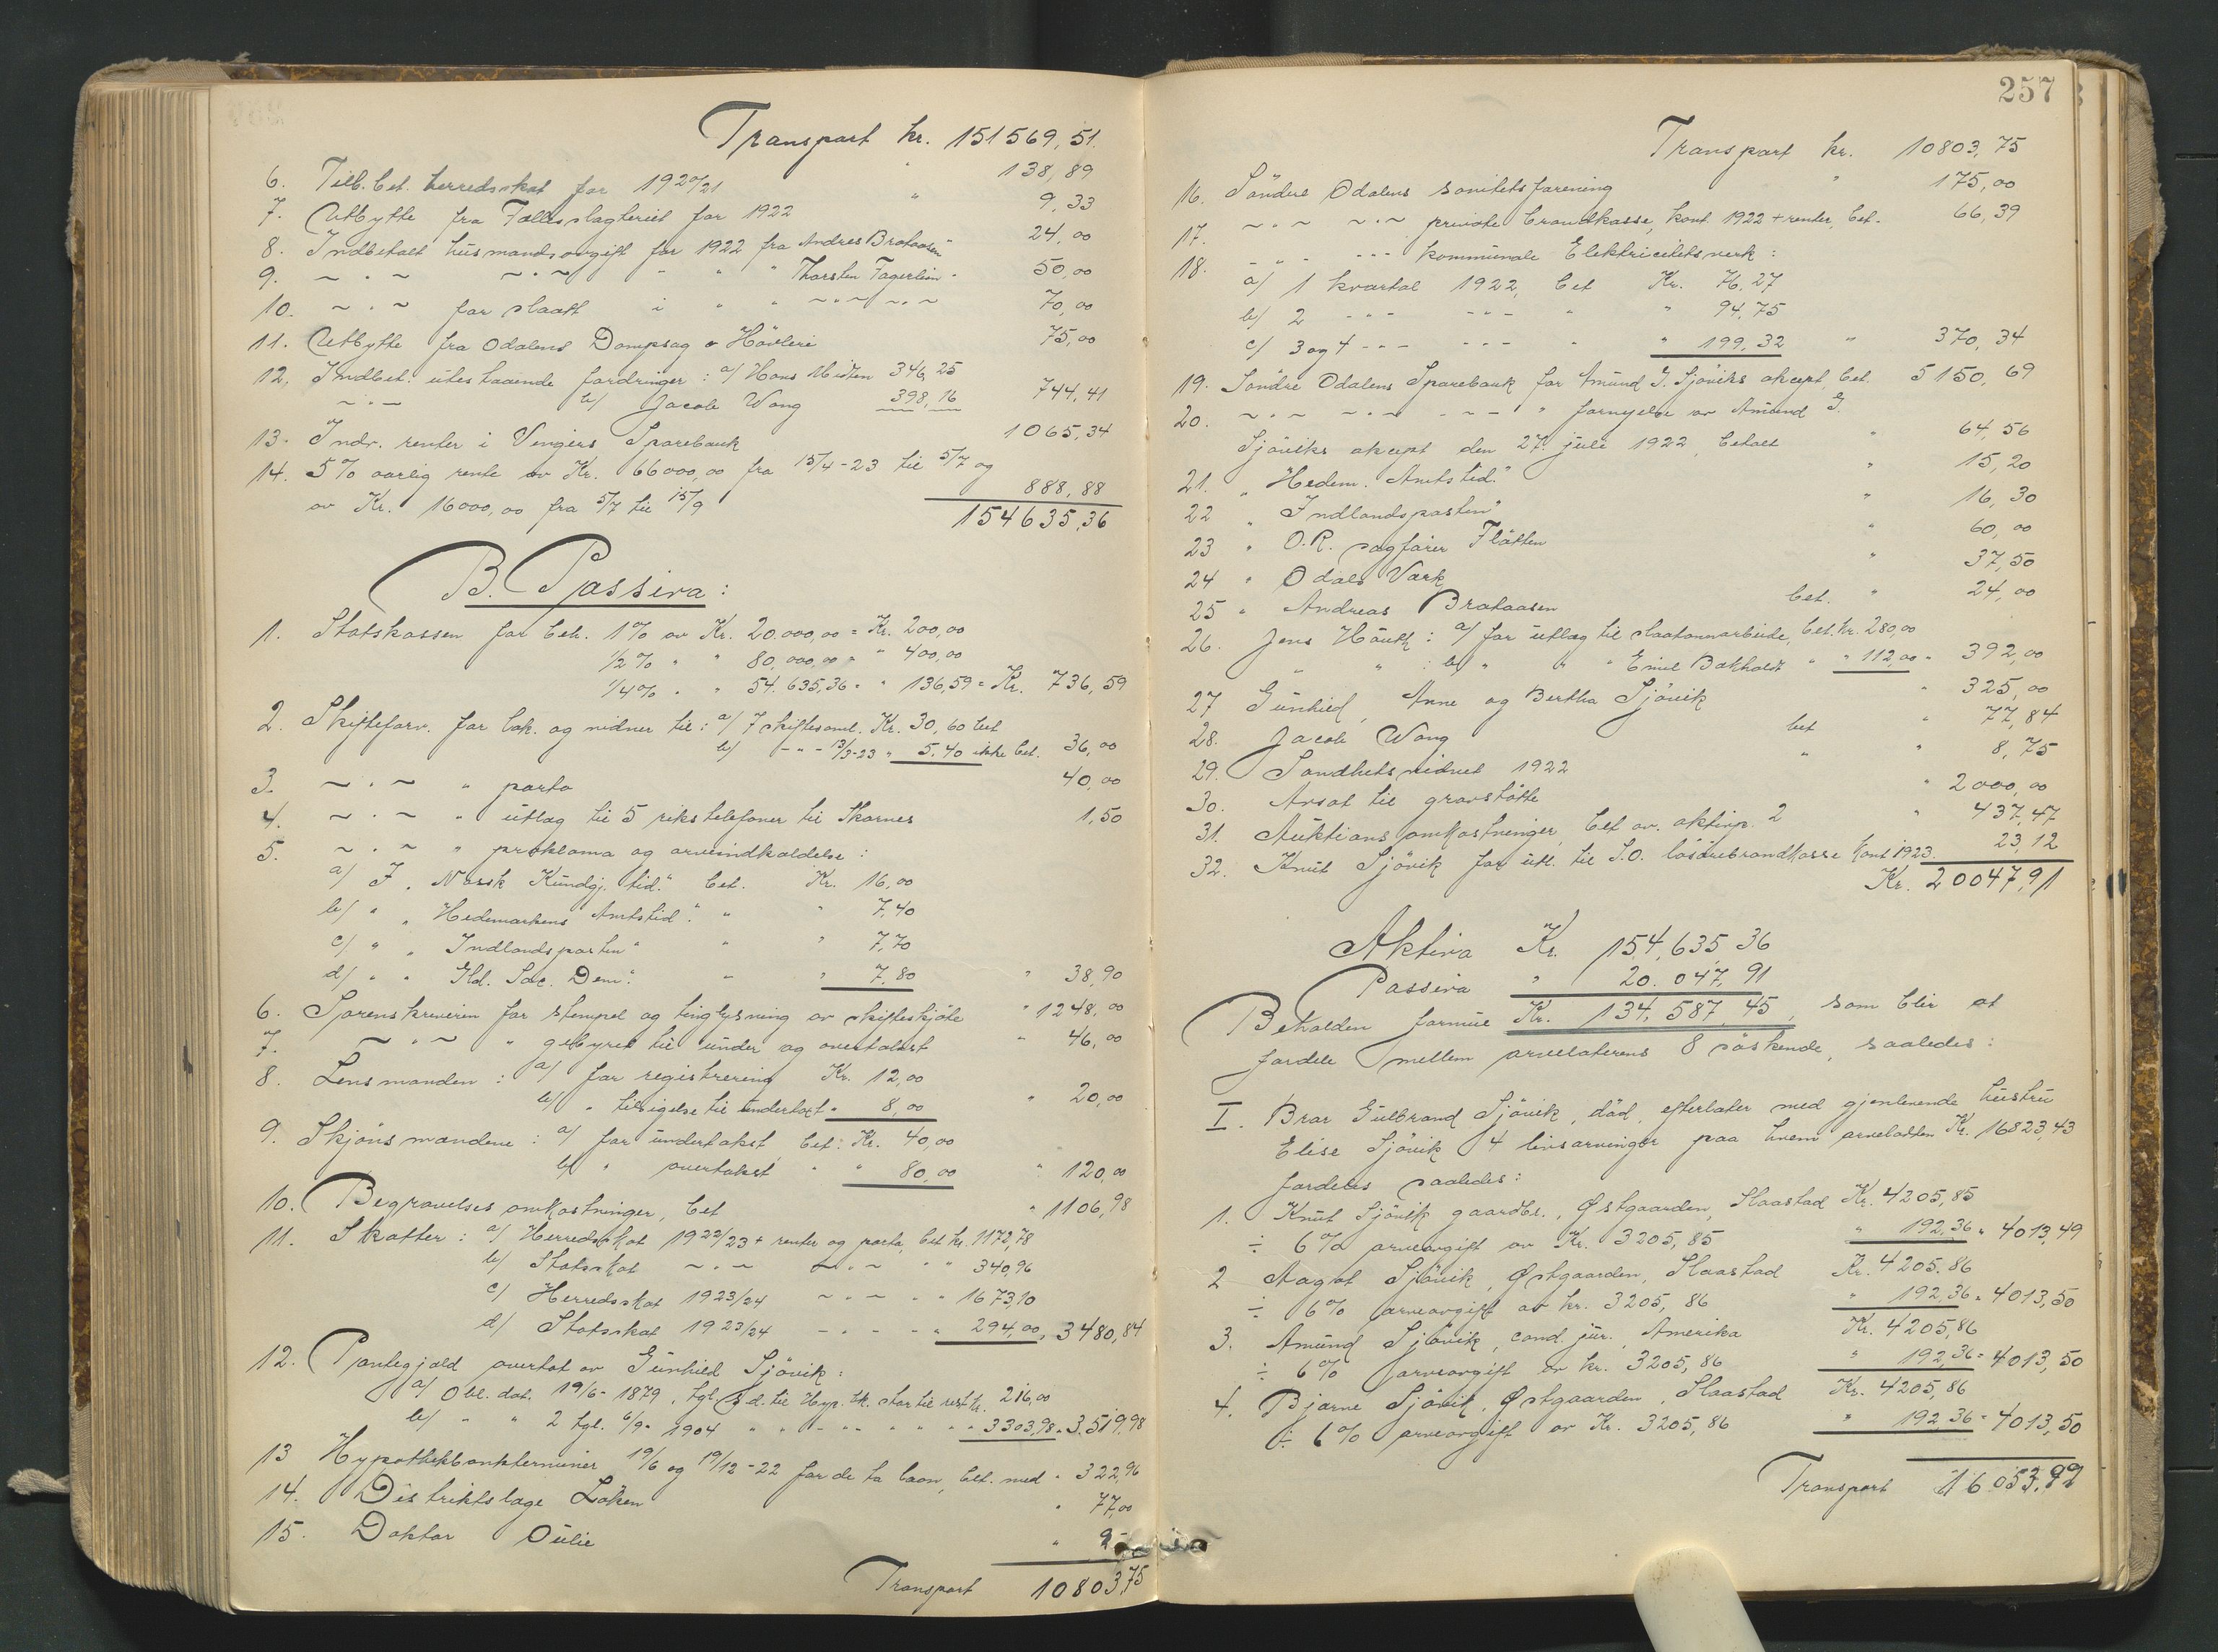 Transport kr. 151569,51.
6. Tilb. bet. herredsskat for 1920/21 " 138,89
7. Utbytte fra Fællesslagteriet for 1922 " 9,33
8. Indbetalt husmandsavgift for 1922 fra Andreas Brataasen 24,00
9. ~ " ~ ~ " ~ - " " Thorsten Fagerlien - 50,00
10. ~ " ~ for slaatt i " " ~ " ~ ~ " ~ 70,00
11. Utbytte fra Odalens Dampsag & Hövleri 75,00
12. Indbet. utestaaende fordringer: a/ Hans Midten 346,25
~ " ~ b/ Jacob Wang 398,16 744,41
13. Indv. renter i Vingers Sparebank 1065,34
14. 5% aarlig rente av Kr. 66000,00 fra 15/4-23 til 5/7 og
av Kr. 16000,00 fra 5/7 til 15/9 888,88
154635,36
B. Passiva:
1. Statskassen for beh. 1% av Kr. 20.000,00 = Kr. 200,00
1/2% " " 80,000,00 = " 400,00
1/4% " " 54.635,36 = " 136,59 = Kr. 736,59
2. Skifteforv. for bok. og vidner til: a/ 7 skiftesaml. Kr. 30,60 bet
b/ - " - 13/3-23 " 5.40 ikke bet. 36,00
3. ~ " ~ " porto 40,00
4. ~ " ~ " utlæg til 5 rikstelefoner til Skarnes 1,50
5. ~ " ~ " proklama og arveindkaldelse:
a/ I "Norsk Kundgj. tid." bet. Kr. 16,00
b/ " "Hedemarkens Amtstid." " " 7,40
c/ " "Indlandsposten" " " 7,70
d/ " " Gld. Soc. Dem." " " 7,80 " 38,90
6. Sorenskriveren for stempel og tinglysning av skifteskjöte " 1248,00
7. ~ " ~ " gebyrer til under og overtakst " 46,00
8. Lensmanden: a/ for registrering Kr. 12,00
b/ " tilsigelse til undertakst " 8,00 " 20,00
9. Skjönsmændene: a/ for undertakst, bet: Kr. 40,00
b/ " overtakst " " 80,00 " 120,00
10. Begravelsesomkostninger, bet " 1106,98
11. Skatter: a/ Herredsskat 1922/23 + renter og porto, bet kr. 1172,78
b/ Statsskat ~ " ~ ~ " ~ " " 340,96
c/ Herredsskat 1923/24 ~ " ~ " " 1673,10
d/ Statsskat 1923/24 - " - " " 294,00, 3480,84
12. Pantegjæld overtat av Gunhild Sjövik:
a/ Obl. dat. 19/6-1879, tgl. s. d. til Hyp. bk. stor til rest kr. 216,00
b/ " " 2 tgl. 6/9- 1904 " " - " " " " 3303,98 " 3.519,98
13 Hypothekbankterminer 19/6 og 19/12-22 for de to laan, bet. med " 322,96
14. Distriktslæge Löken " 77,00
15. Doktor Oulie " 9-
Transport 10803,75
257
Transport kr. 10803,75
16. Söndre Odalens sanitetsforening " 175,00
17. ~ " ~ ~ " ~ private brandkasse, kont 1922 + renter, bet. 66,39
18. - " - - " - kommunale Elektricitetsverk:
a/ 1 kvartal 1922, bet Kr. 76,27
b/ 2 - " - - " - " " 94,75
c/ 3 og 4 - " - - " - " " 199,32 " 370,34
19. Söndre Odalens Sparebank for Amund G. Sjöviks aksept, bet. 5150,69
20. ~ " ~ ~ " ~ - " - " fornyelse av Amund G.
Sjöviks aksept den 27. juli 1922, betalt " 64,56
21. "Hedem. Amtstid." " 15,20
22 "Indlandsposten" " 16,30
23 " O.R. sagförer Flötten " 60,00
24 " Odals Værk " 37,50
25 " Andreas Brataasen bet. " 24,00
26. Jens Hauth: a/ for utlæg til slaatonnarbeide, bet. kr. 280,00
" " : b/ " " " Emil Bakholdt " " 112,00 " 392,00
27 Gunhild, Anne og Bertha Sjövik " 325,00
28. Jacob Wang bet " 77,84
29. Sandhetsvidnet 1922 " " 8,75
30. Avsat til gravstötte " 2000,00
31. Auktionsomkostninger, bet av. aktivp. 2 " 437,47
32. Knut Sjövik for utl. til S.O. lösörebrandkasse kont 1923. 23,12
Kr. 20047,91
Aktiva Kr. 154,635,36
Passiva " 20.047,91
Beholden formue Kr. 134,587,45, som blir at
fordele mellem arveladerens 8 söskende, saaledes:
I. Bror Gulbrand Sjövik, död, efterlater med gjenlevende hustru
Elise Sjövik 4 livsarvinger paa hvem arvelodden Kr. 16823,43
fordeles saaledes:
1. Knut Sjövik gaardbr., Østgaarden, Slaastad Kr. 4205,85
÷ 6% arveavgift av Kr. 3205,85 " 192,36 " 4013,49
2 Aagot Sjövik, Østgaarden, Slaastad Kr. 4205.86
÷ 6% arveavgift av kr. 3205,86 " 192,36 " 4013,50
3. Amund Sjövik, cand. jur., Amerika Kr. 4205,86
÷ 6% arveavgift av kr. 3205,86 " 192,36 = 4013,50
4. Bjarne Sjövik, Østgaarden, Slaastad Kr. 4205,86
÷ 6% arveavgift av Kr. 3205,86 " 192,36 = 4013,50
Transport 16053,99